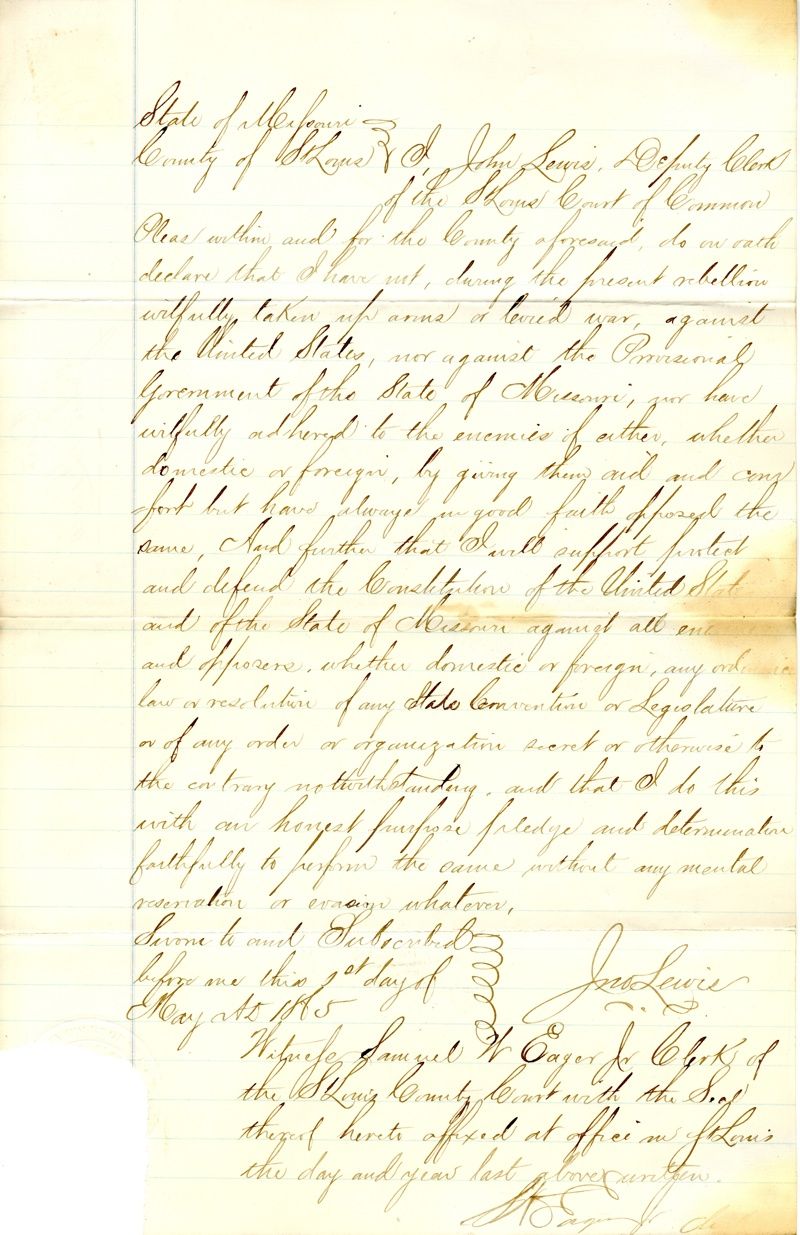 State of Missouri
County of St Louis } I, John Lewis, Deputy Clerk
of the St Louis Court of Common
Pleas within and for the County aforesaid, do on oath
declare that I have not, during the present rebellion
wilfully taken up arms or levied war, against
the United States, nor against the Provisional
Government of the State of Missouri, nor have
wilfully adhered to the enemies of either, whether
domestic or foreign, by giving them aid and com
-fort but have always in good faith opposed the
same, And further that I will support protect
and defend the Constitution of the United State
and of the State of Missouri against all ene
and opposers, whether domestic or foreign, any ordinance
law or resolution of any State Convention or Legislature
or of any order or organization secret or otherwise to
the contrary notwithstanding, and that I do this
with an honest purpose pledge and determination
faithfully to perform the same without any mental
reservation or evasion whatever,
Sworn to and Subscribed
before me this 1st day of
May AD 1865
Jno Lewis
Witness Samuel W Eager Jr Clerk of
the St Louis County Court with the Seal
thereof hereto affixed at office in St Louis
the day and year last above written.
S W Eager Jr